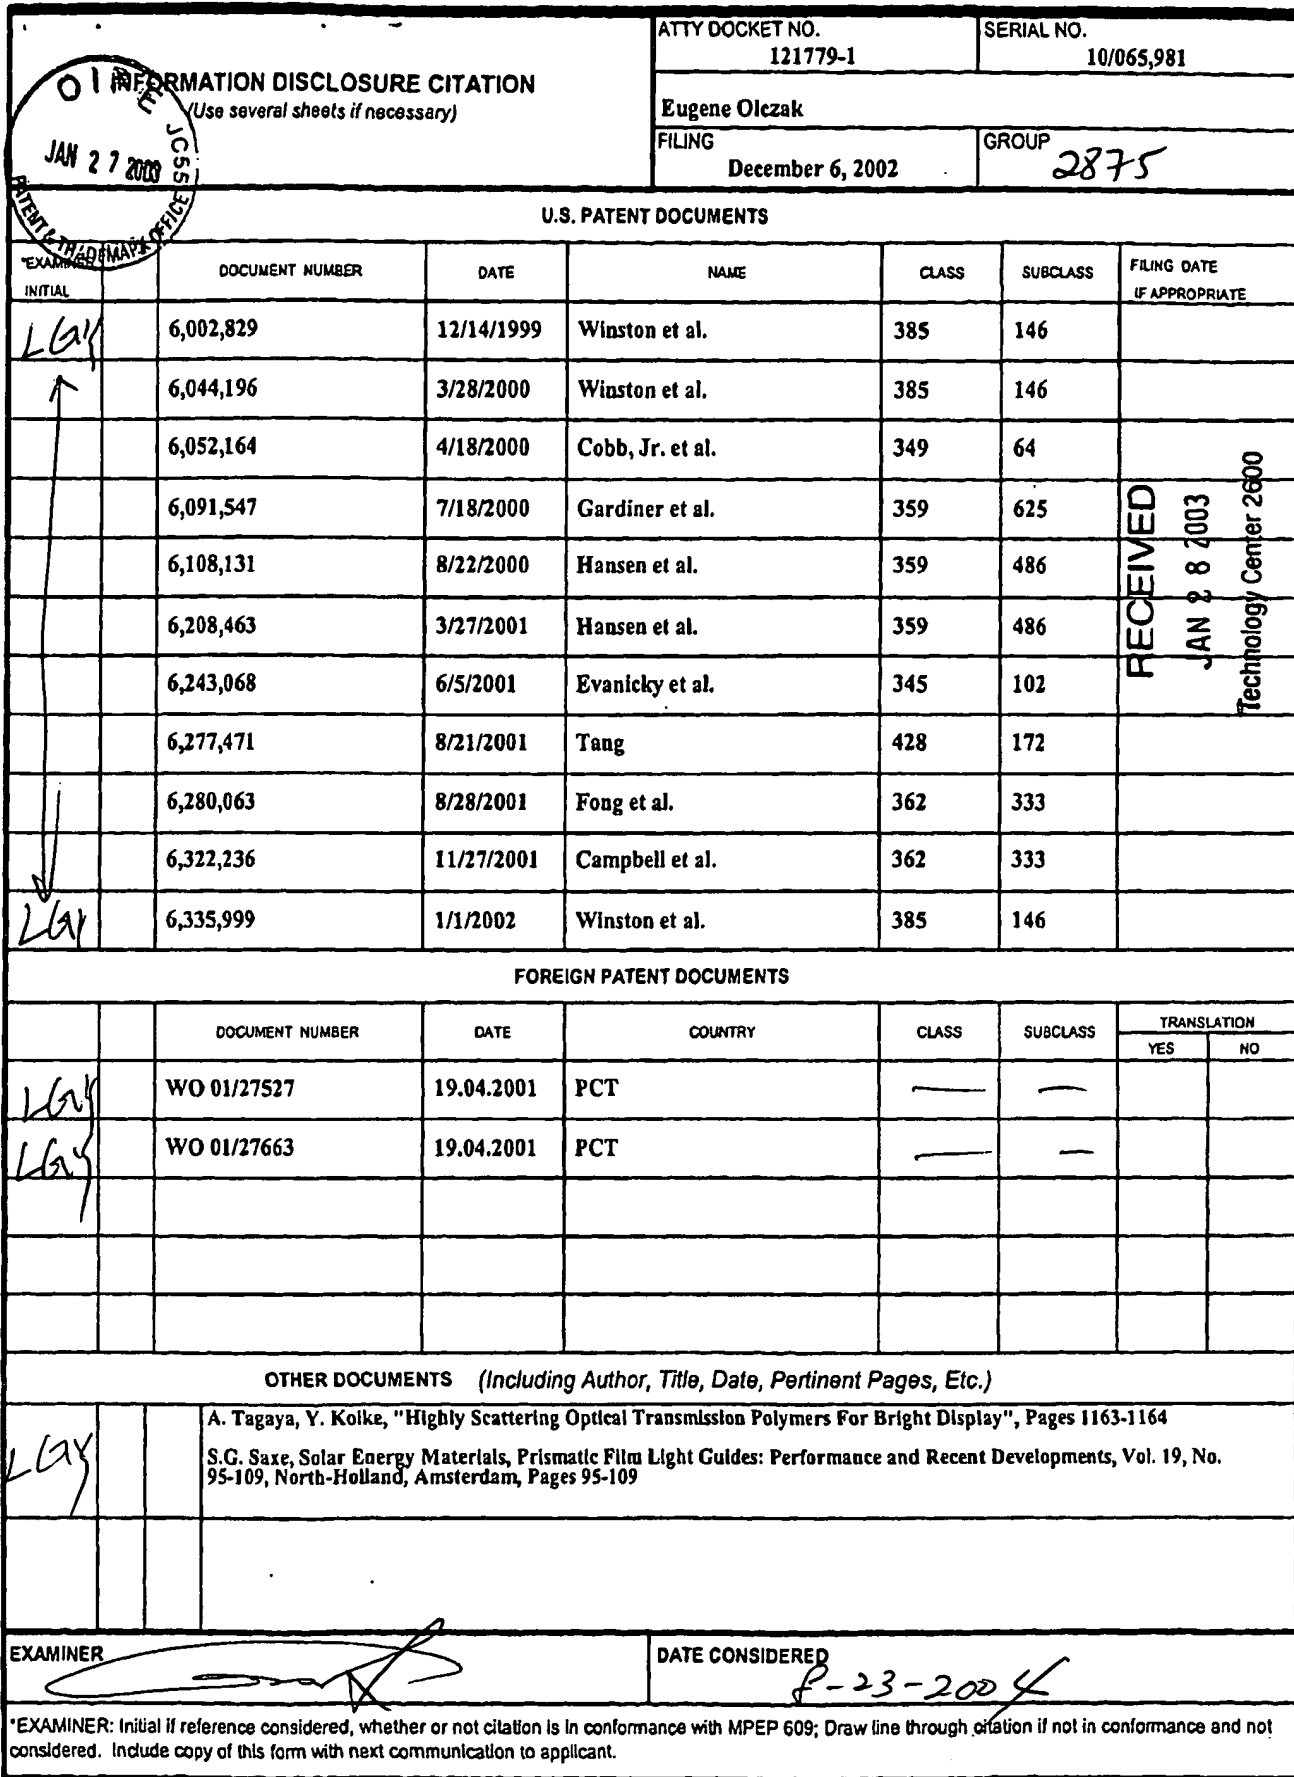 ATTY DOCKET NO.
121779-1
SERIAL NO.
10/065,981
INFORMATION DISCLOSURE CITATION
(Use several sheets if necessary)
Eugene Olczak
FILING
December 6, 2002
GROUP
2875
O I P E JC55
JAN 27 2003
PATENT & TRADEMARK OFFICE
U.S. PATENT DOCUMENTS
*EXAMINER INITIAL DOCUMENT NUMBER DATE NAME CLASS SUBCLASS FILING DATE IF APPROPRIATE
LGY 6,002,829 12/14/1999 Winston et al. 385 146
6,044,196 3/28/2000 Winston et al. 385 146
6,052,164 4/18/2000 Cobb, Jr. et al. 349 64
6,091,547 7/18/2000 Gardiner et al. 359 625
6,108,131 8/22/2000 Hansen et al. 359 486
6,208,463 3/27/2001 Hansen et al. 359 486
6,243,068 6/5/2001 Evanicky et al. 345 102
6,277,471 8/21/2001 Tang 428 172
6,280,063 8/28/2001 Fong et al. 362 333
6,322,236 11/27/2001 Campbell et al. 362 333
LGY 6,335,999 1/1/2002 Winston et al. 385 146
RECEIVED
JAN 28 2003
Technology Center 2600
FOREIGN PATENT DOCUMENTS
DOCUMENT NUMBER DATE COUNTRY CLASS SUBCLASS TRANSLATION
YES NO
LGY WO 01/27527 19.04.2001 PCT — —
LGY WO 01/27663 19.04.2001 PCT — —
OTHER DOCUMENTS (Including Author, Title, Date, Pertinent Pages, Etc.)
LGY
A. Tagaya, Y. Koike, "Highly Scattering Optical Transmission Polymers For Bright Display", Pages 1163-1164
S.G. Saxe, Solar Energy Materials, Prismatic Film Light Guides: Performance and Recent Developments, Vol. 19, No.
95-109, North-Holland, Amsterdam, Pages 95-109
EXAMINER
DATE CONSIDERED
8-23-2004
*EXAMINER: Initial if reference considered, whether or not citation is in conformance with MPEP 609; Draw line through citation if not in conformance and not
considered. Include copy of this form with next communication to applicant.